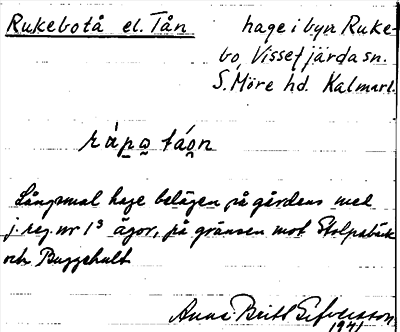 Rukebotå el. Tån
hage i byn Ruke-
bo, Vissefjärda sn.
S. Möre hd. Kalmarl.
Långsmal hage belägen på gårdens med
j. reg. nr 1³ ägor, på gränsen mot Stolpabäck
och Buggehult
Anna-Britt Sifversson
1941